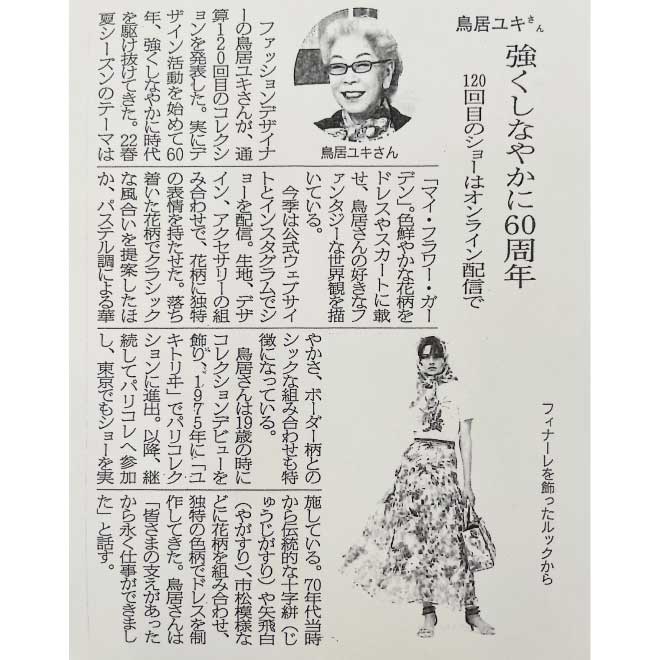 鳥居ユキさん
強くしなやかに60周年
120回目のショーはオンライン配信で
鳥居ユキさん
ファッションデザイナ
ーの鳥居ユキさんが、通
算120回目のコレクシ
ョンを発表した。実にデ
ザイン活動を始めて60
年、強くしなやかに時代
を駆け抜けてきた。22春
夏シーズンのテーマは
「マイ・フラワー・ガー
デン」。色鮮やかな花柄を
ドレスやスカートに載
せ、鳥居さんの好きなフ
ァンタジーな世界観を描
いている。
今季は公式ウェブサイ
トとインスタグラムでシ
ョーを配信。生地、デザ
イン、アクセサリーの組
み合わせで、花柄に独特
の表情を持たせた。落ち
着いた花柄でクラシック
な風合いを提案したほ
か、パステル調による華
やかさ、ボーダー柄との
シックな組み合わせも特
徴になっている。
鳥居さんは19歳の時に
コレクションデビューを
飾り、1975年に「ユ
キトリヰ」でパリコレク
ションに進出。以降、継
続してパリコレへ参加
し、東京でもショーを実
施している。70年代当時
から伝統的な十字絣（じ
ゅうじがすり）や矢飛白
（やがすり）、市松模様な
どに花柄を組み合わせ、
独特の色柄でドレスを制
作してきた。鳥居さんは
「皆さまの支えがあった
から永く仕事ができまし
た」と話す。
フィナーレを飾ったルックから